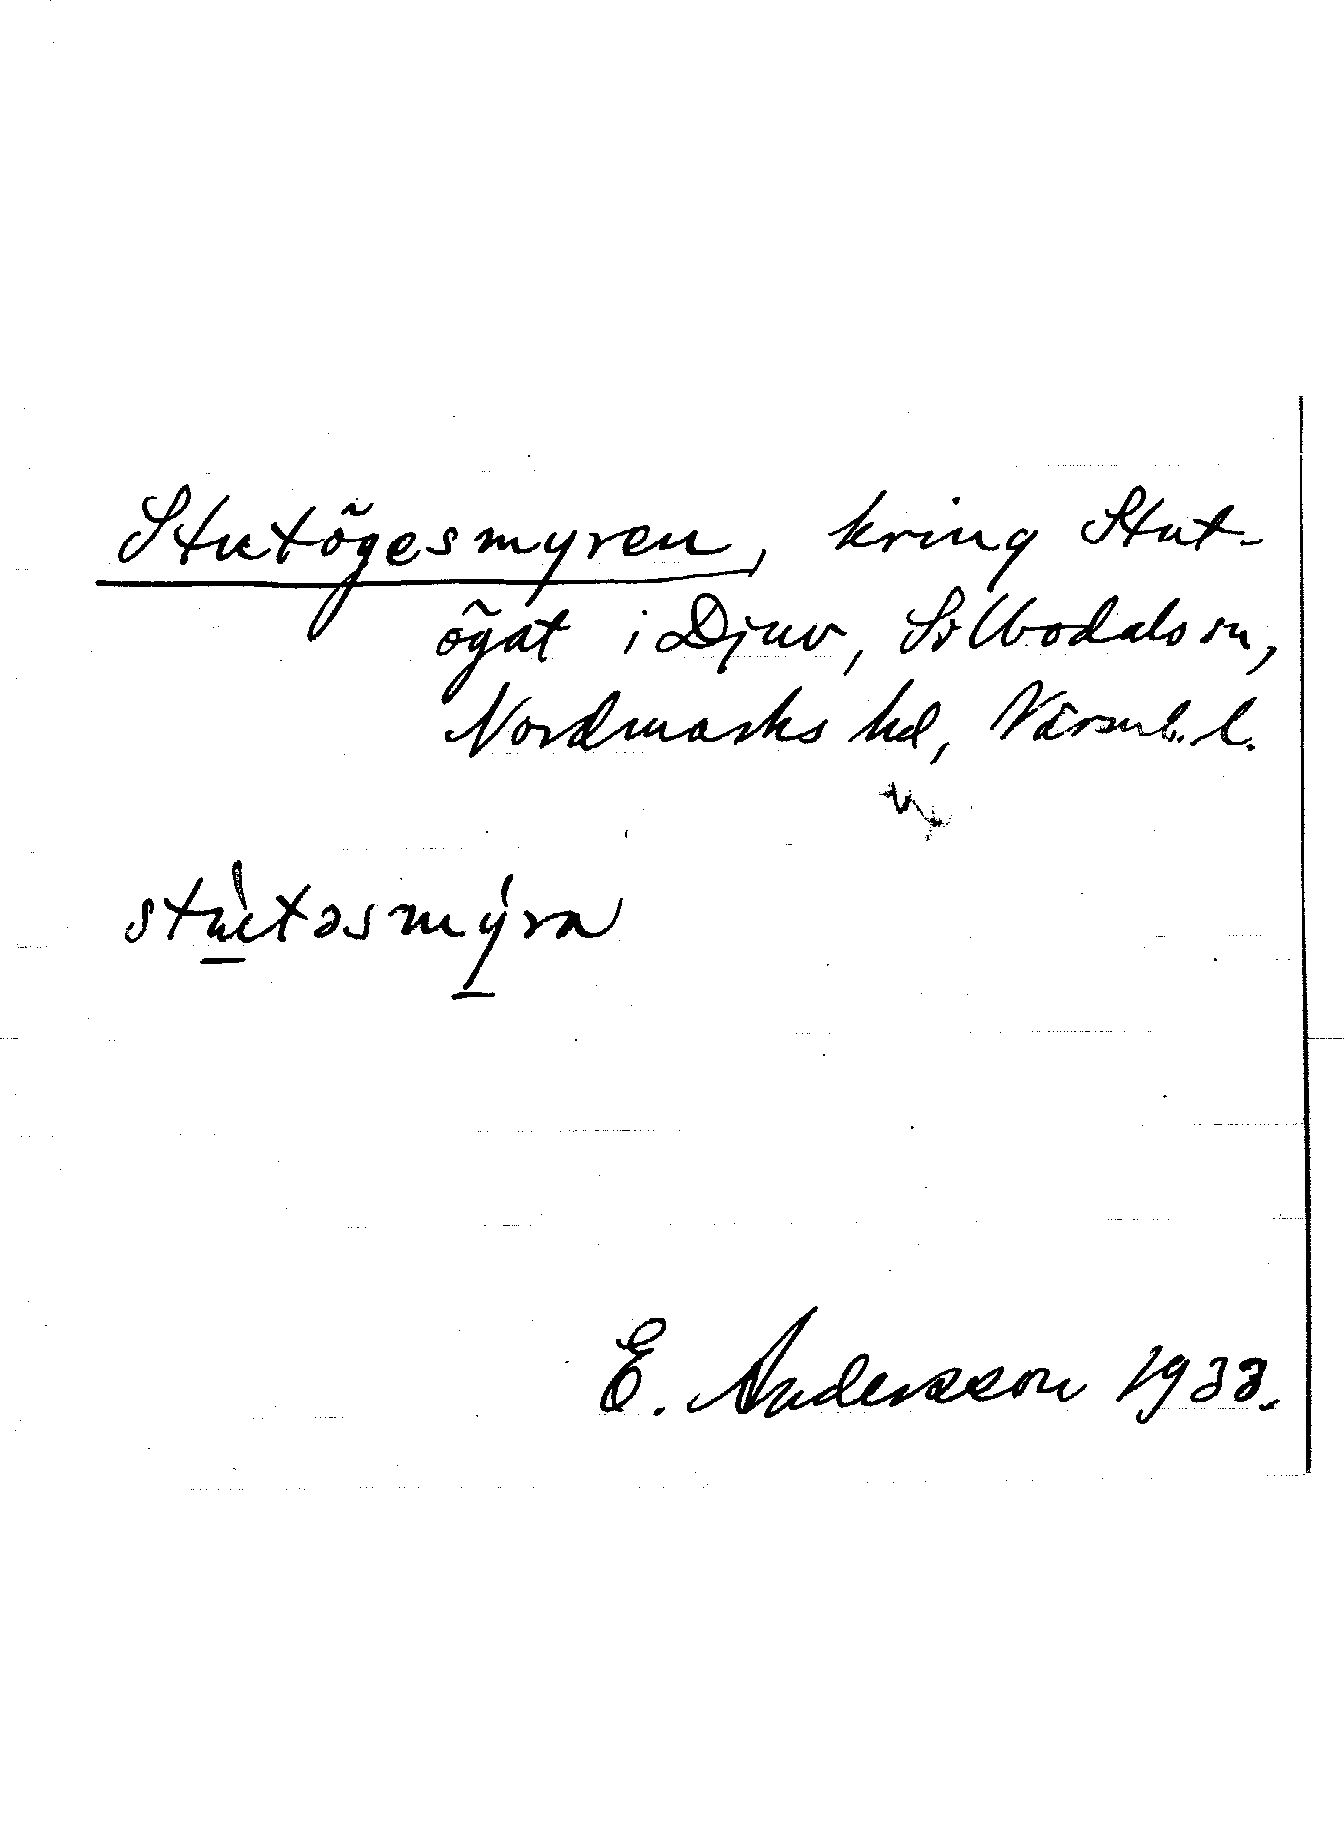 Stutögesmyren, kring Stut-
ögat i Djuv, Silbodals sn,
Nordmarks hd, Värml. l.
stù̱təsmý̱ra
E. Andersson 1933.